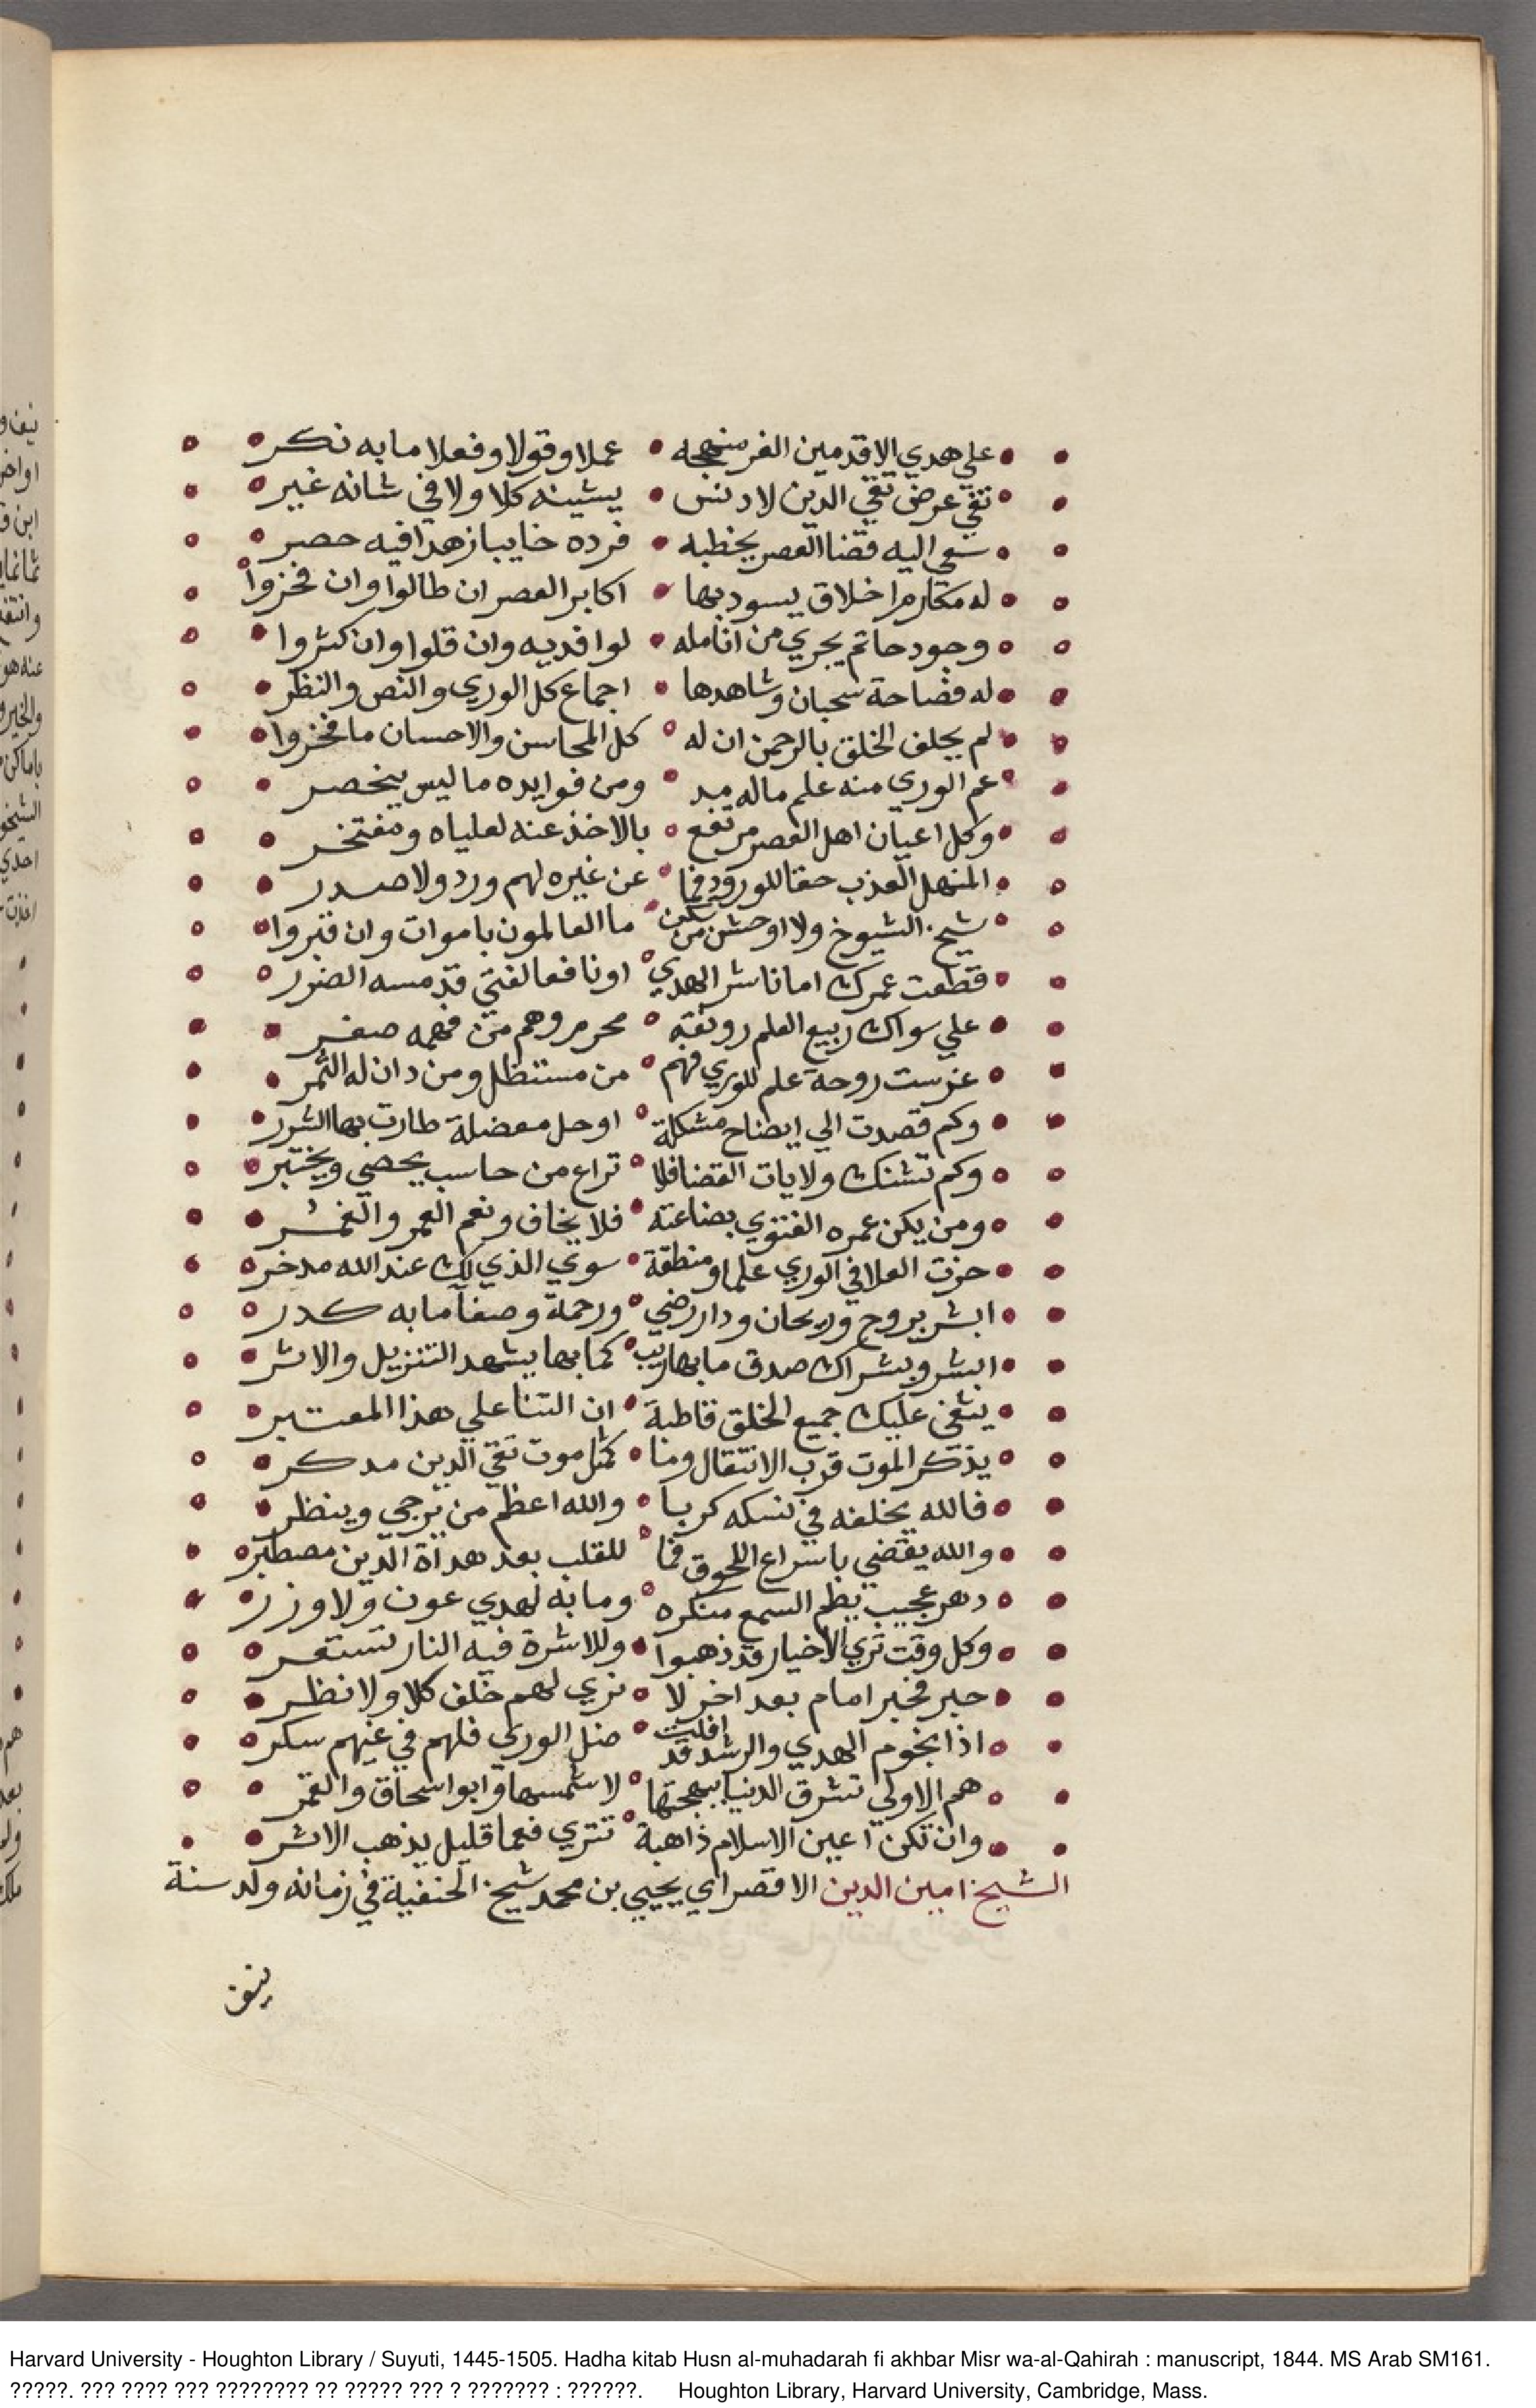 علي هدي الاقدمين الغر منهجه عملا وقولا وفعلا ما به نكر
تقي عرض تقي الدين لا دنس يشينه كلا ولا في شانه غير
سعي اليه قضا العصر يخطبه فرده خايبا زهدا فيه حصر
له مكارم اخلاق يسود بها اكابر العصر ان طالوا وان فخروا
وجود حاتم يجري من انامله لوافديه وان قلوا وان كثروا
له فصاحة سحبان وشاهدها اجماع كل الوري والنص والنظر
لم يحلف الخلق بالرحمن ان له كل المحاسن والاحسان ما فخروا
عم الوري منه علم ماله مدد ومن فوايده ما ليس ينحصر
وكل اعيان اهل العصر مرتفع بالاخذ عنه لعلياه ومفتخر
المنهل العذب حقا للورود فما عن غيره لهم ورد ولا صدر
شيخ الشيوخ ولا اوحشن من سكن ما العالمون باموات وان قبروا
قطعت عمرك اما ناشر الهدي او نافعا لفتي قد مسه الضرر
علي سواك ربيع العلم رونقه محرم وهم من فهمه صفر
غرست دوحة علم للوري فهم من مستظل ومن دان له الثمر
وكم قصدت الي ايضاح مشكلة او حل معضلة طارت بها الشرر
وكم تشنك ولايات القضا فلا تراع من حاسب يحصي ويختبر
ومن يكن عمره الفتوي بضاعته فلا يخاف ونعم العمر والعمر
حزت العلا في الوري علما ومنطقة سوي الذي لك عند الله مدخر
ابشر بروح وريحان ودار رضي ورحمة وصفآ ما به كدر
ابشر وبشراك صدق ما بها ريب كما بها يشهد التنزيل والاثر
يثني عليك جميع الخلق قاطبة ان الثنا علي هذا المعتبر
يذكر الموت قرب الانتقال وما كمثل موت تقي الدين مدكر
فالله يخلفه في نسكه كربا والله اعظم من يرجي وينظر
والله يقضي باسراع اللحوق فما للقلب بعد هداة الدين مصطبر
دهر عجيب يطم السمع منكره وما به لهدي عون ولا وزر
وكل وقت تري الاخيار قد ذهبوا وللاشرة فيه النار تستعر
حبر فخبر امام بعد اخر لا نري لهم خلف كلا ولا نظر
اذا نجوم الهدي والرشد قد افلت ضل الوري فلهم في غيهم سكر
هم الاولي تشرق الدنيا ببهجتها لا شمسها وابو اسحاق والقمر
وان تكن اعين الاسلام ذاهبة تتري فعما قليل يذهب الاثر
الشيخ امين الدين الاقصراي يحيي بن محمد شيخ الحنفية في زمانه ولد سنة
نيف